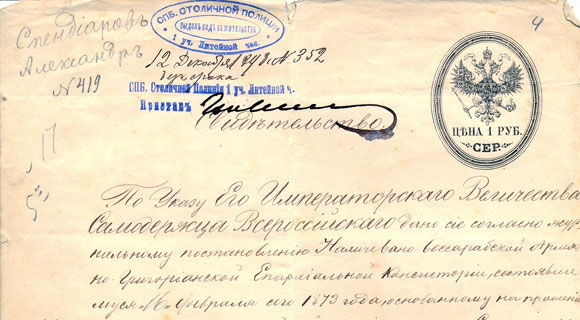 Спендіаровъ
Александръ
N 419
4
СПБ. СТОЛИЧНОЙ ПОЛИЦІИ
1 уч. Литейной час.
12 Декабря N 352
СПБ. Столичной Полиціи 1 уч. Литейной ч.
Приставъ
Свидѣтельство.
ЦѢНА 1 РУБ.
СЕР.
По Указу Его Императорскаго Величества
Самодержца Всероссійскаго дано сіе согласно жур-
нальному постановленію Нахичевано-бессарабской армян-
но-Григоріанской Епархіальной Консисторіи, состоявше-
муся Февраля сего 1873 года, основанному на прошеніи